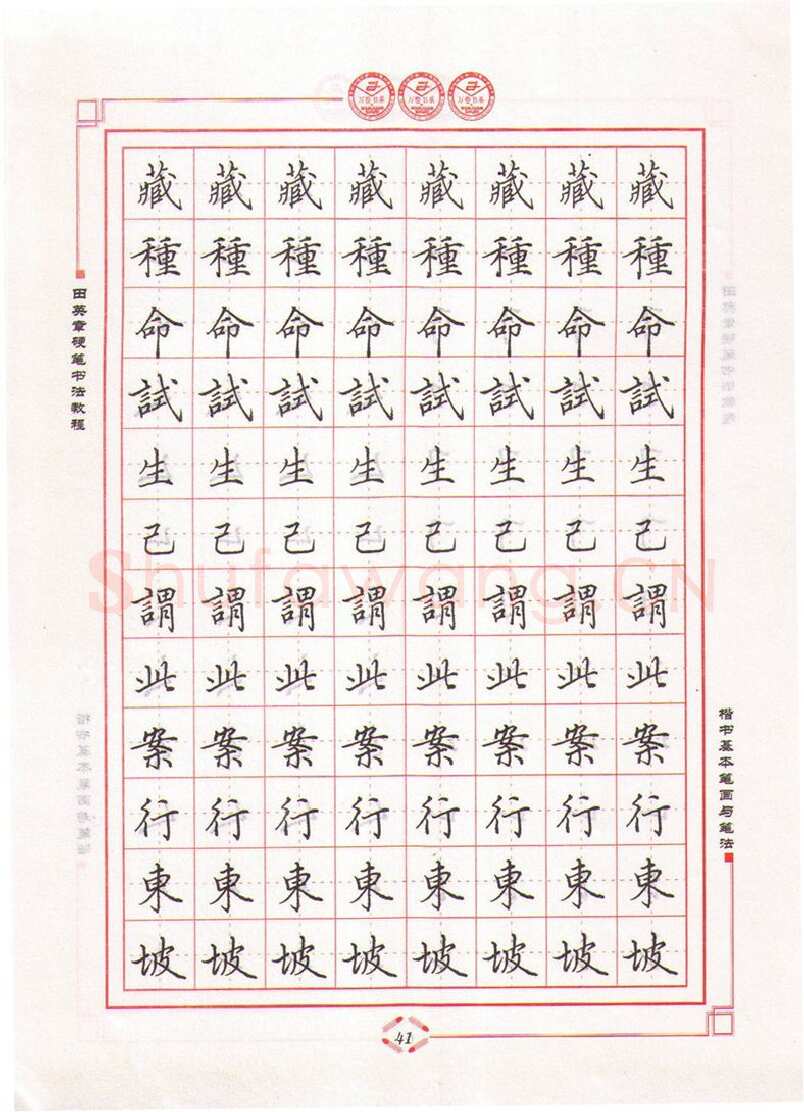 万卷书系 万卷书系 万卷书系
藏藏藏藏藏藏藏藏
種種種種種種種種
命命命命命命命命
試試試試試試試試
生生生生生生生生
己己己己己己己己
謂謂謂謂謂謂謂謂
此此此此此此此此
案案案案案案案案
行行行行行行行行
東東東東東東東東
坡坡坡坡坡坡坡坡
田英章硬笔书法教程
楷书基本笔画与笔法
Shufawang.CN
41